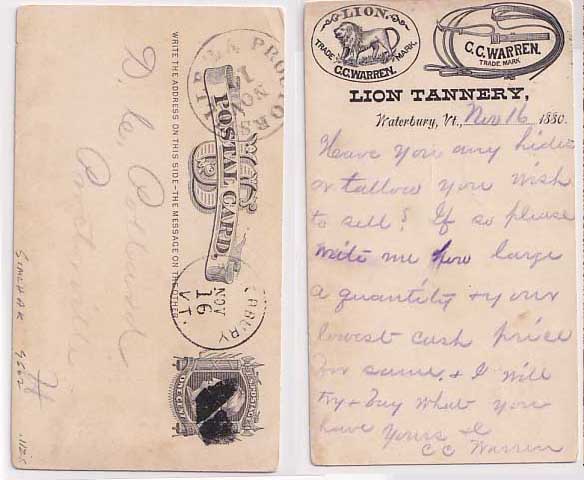 WRITE THE ADDRESS ON THIS SIDE-THE MESSAGE ON THE OTHER
POSTAL CARD.
PROCTORS
NOV
NOV
16
VT.
ONE CENT
D. C.
LION.
TRADE MARK.
C.C. WARREN.
C.C. WARREN.
TRADE MARK
LION TANNERY,
Waterbury, Vt., Nov 16 1880.
Have you any hides
or tallow you wish
to sell? If so please
write me how large
a quantity & your
lowest cash price
for same. & I will
try & buy what you
have Yours &c
C C Warren